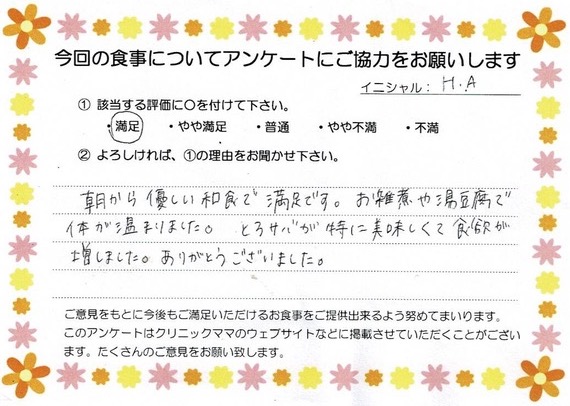 今回の食事についてアンケートにご協力をお願いします
イニシャル： H.A
① 該当する評価に〇を付けて下さい。
・満足 ・やや満足 ・普通 ・やや不満 ・不満
② よろしければ、①の理由をお聞かせ下さい。
朝から優しい和食で満足です。お雑煮や湯豆腐で
体が温まりました。 とろサバが特に美味しくて食欲が
増しました。ありがとうございました。
ご意見をもとに今後もご満足いただけるお食事をご提供出来るよう努めてまいります。
このアンケートはクリニックママのウェブサイトなどに掲載させていただくことがござい
ます。たくさんのご意見をお願い致します。